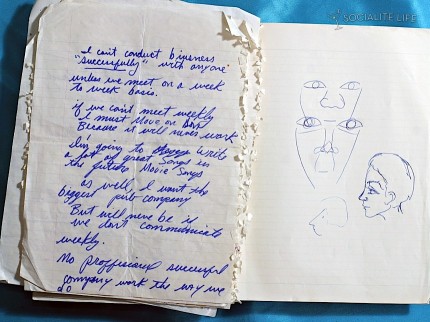 SOCIALITE LIFE
I can't conduct biusness
"successfully" with anyone
unless we meet on a week
to week basis.
if we can't meet weekly
I must move on
Because it will never work
I'm going to write
a lot of great songs in
the future Movie Songs
as well, I want the
biggest pub company
But will never be if
we dont communicate
weekly.
No proffiscional successful
company work the way we
do